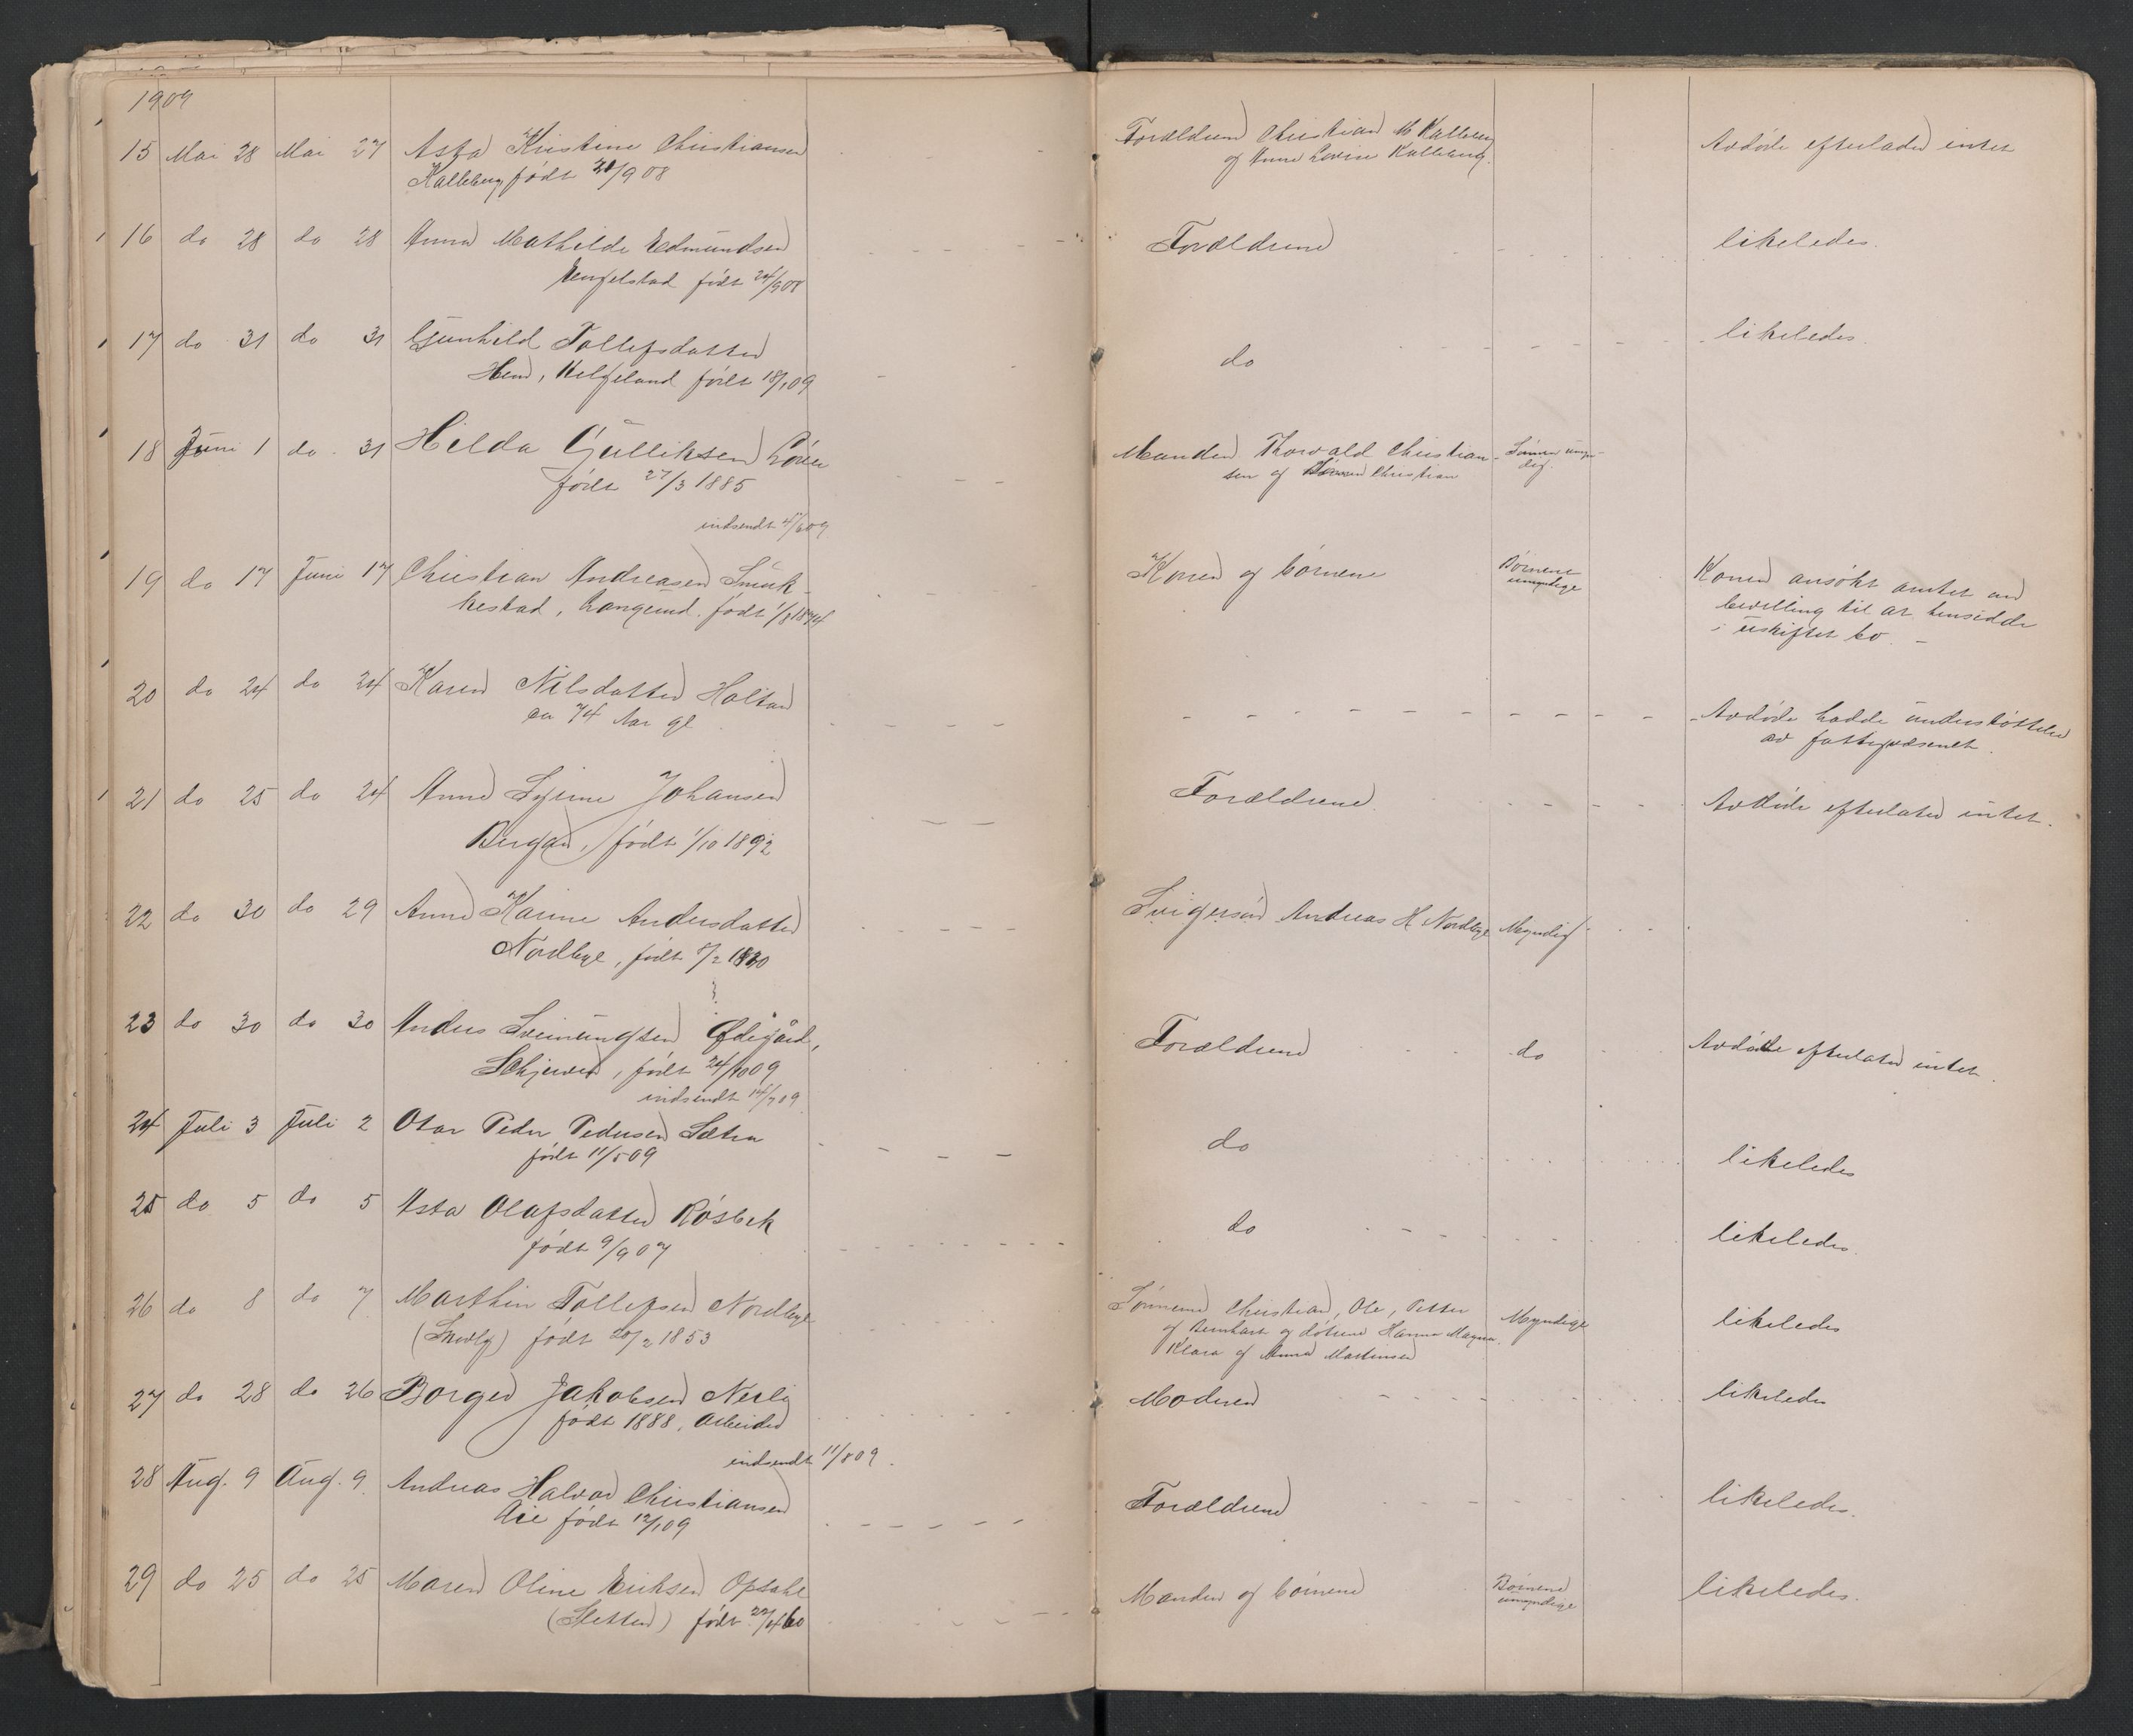 1909
15 Mai 28 Mai 27 Asta Kristine Christiansen Forældrene Christian M Kalleberg Avdøde efterlader intet
Kalleberg født 21/9 08 og Anne Lovise Kalleberg.
16 do 28 do 28 Anna Mathilde Edmundsen Forældrene likeledes.
født 24/9 08
17 do 31 do 31 Gunhild Tollefsdatter do likeledes.
Hem, Helgeland født 18/1 09
18 Juni 1 do 31 Hilda Gulliksen Manden Thorvald Christian- Sønnen umyn-
født 27/3 1885 sen og Sønnen Christian dig.
indsendt 4/6 09
19 do 17 Juni 17 Christian Andreasen Smuk- Konen og børnene Børnene umyndige Konen ansøkt amtet om
kestad, Langsund. født 1/8 1874 bevilling til at hensidde
i uskiftet bo. -
20 do 24 do 24 Karen Nilsdatter Holtan Avdøde hadde understøttelse
ca 74 Aar gl av fattigvæsenet.
21 do 25 do 24 Anne Johansen Forældrene. Avdøde efterlater intet.
Bergan, født 1/10 1892
22 do 30 do 29 Anne Karine Andersdatter Svigersøn Andreas H Nordbye Myndig
Nordbye, født 8/2 1830
23 do 30 do 30 Anders Sveinungsen Ødegård, Forældrene do Avdøde efterlater intet.
født 24/10 09
indsendt 14/7 09
24 Juli 3 Juli 2 Otar Peder Pedersen Sætra do likeledes
født 11/5 09
25 do 5 do 5 Asta Olafsdatter Røsbek do likeledes.
født 9/9 07
26 do 8 do 7 Marthin Tollefsen Nordbye Sønnene Christian, Ole, Petter Myndige likeledes
født 20/2 1853 og Bernhart og døtrene Hanna Magna.
Klara og Anna Martinsen
27 do 28 do 26 Borger Jakobsen Moderen likeledes
født 1888. Arbeider
indsendt 11/8 09.
28 Aug. 9 Aug. 9. Andreas Halvor Christiansen Forældrene likeledes.
født 12/1 09
29 do 25 do 25 Maren Oline Eriksen Opdahl Manden og børnene Børnene umyndige likeledes.
(Sletten) født 22/4 60